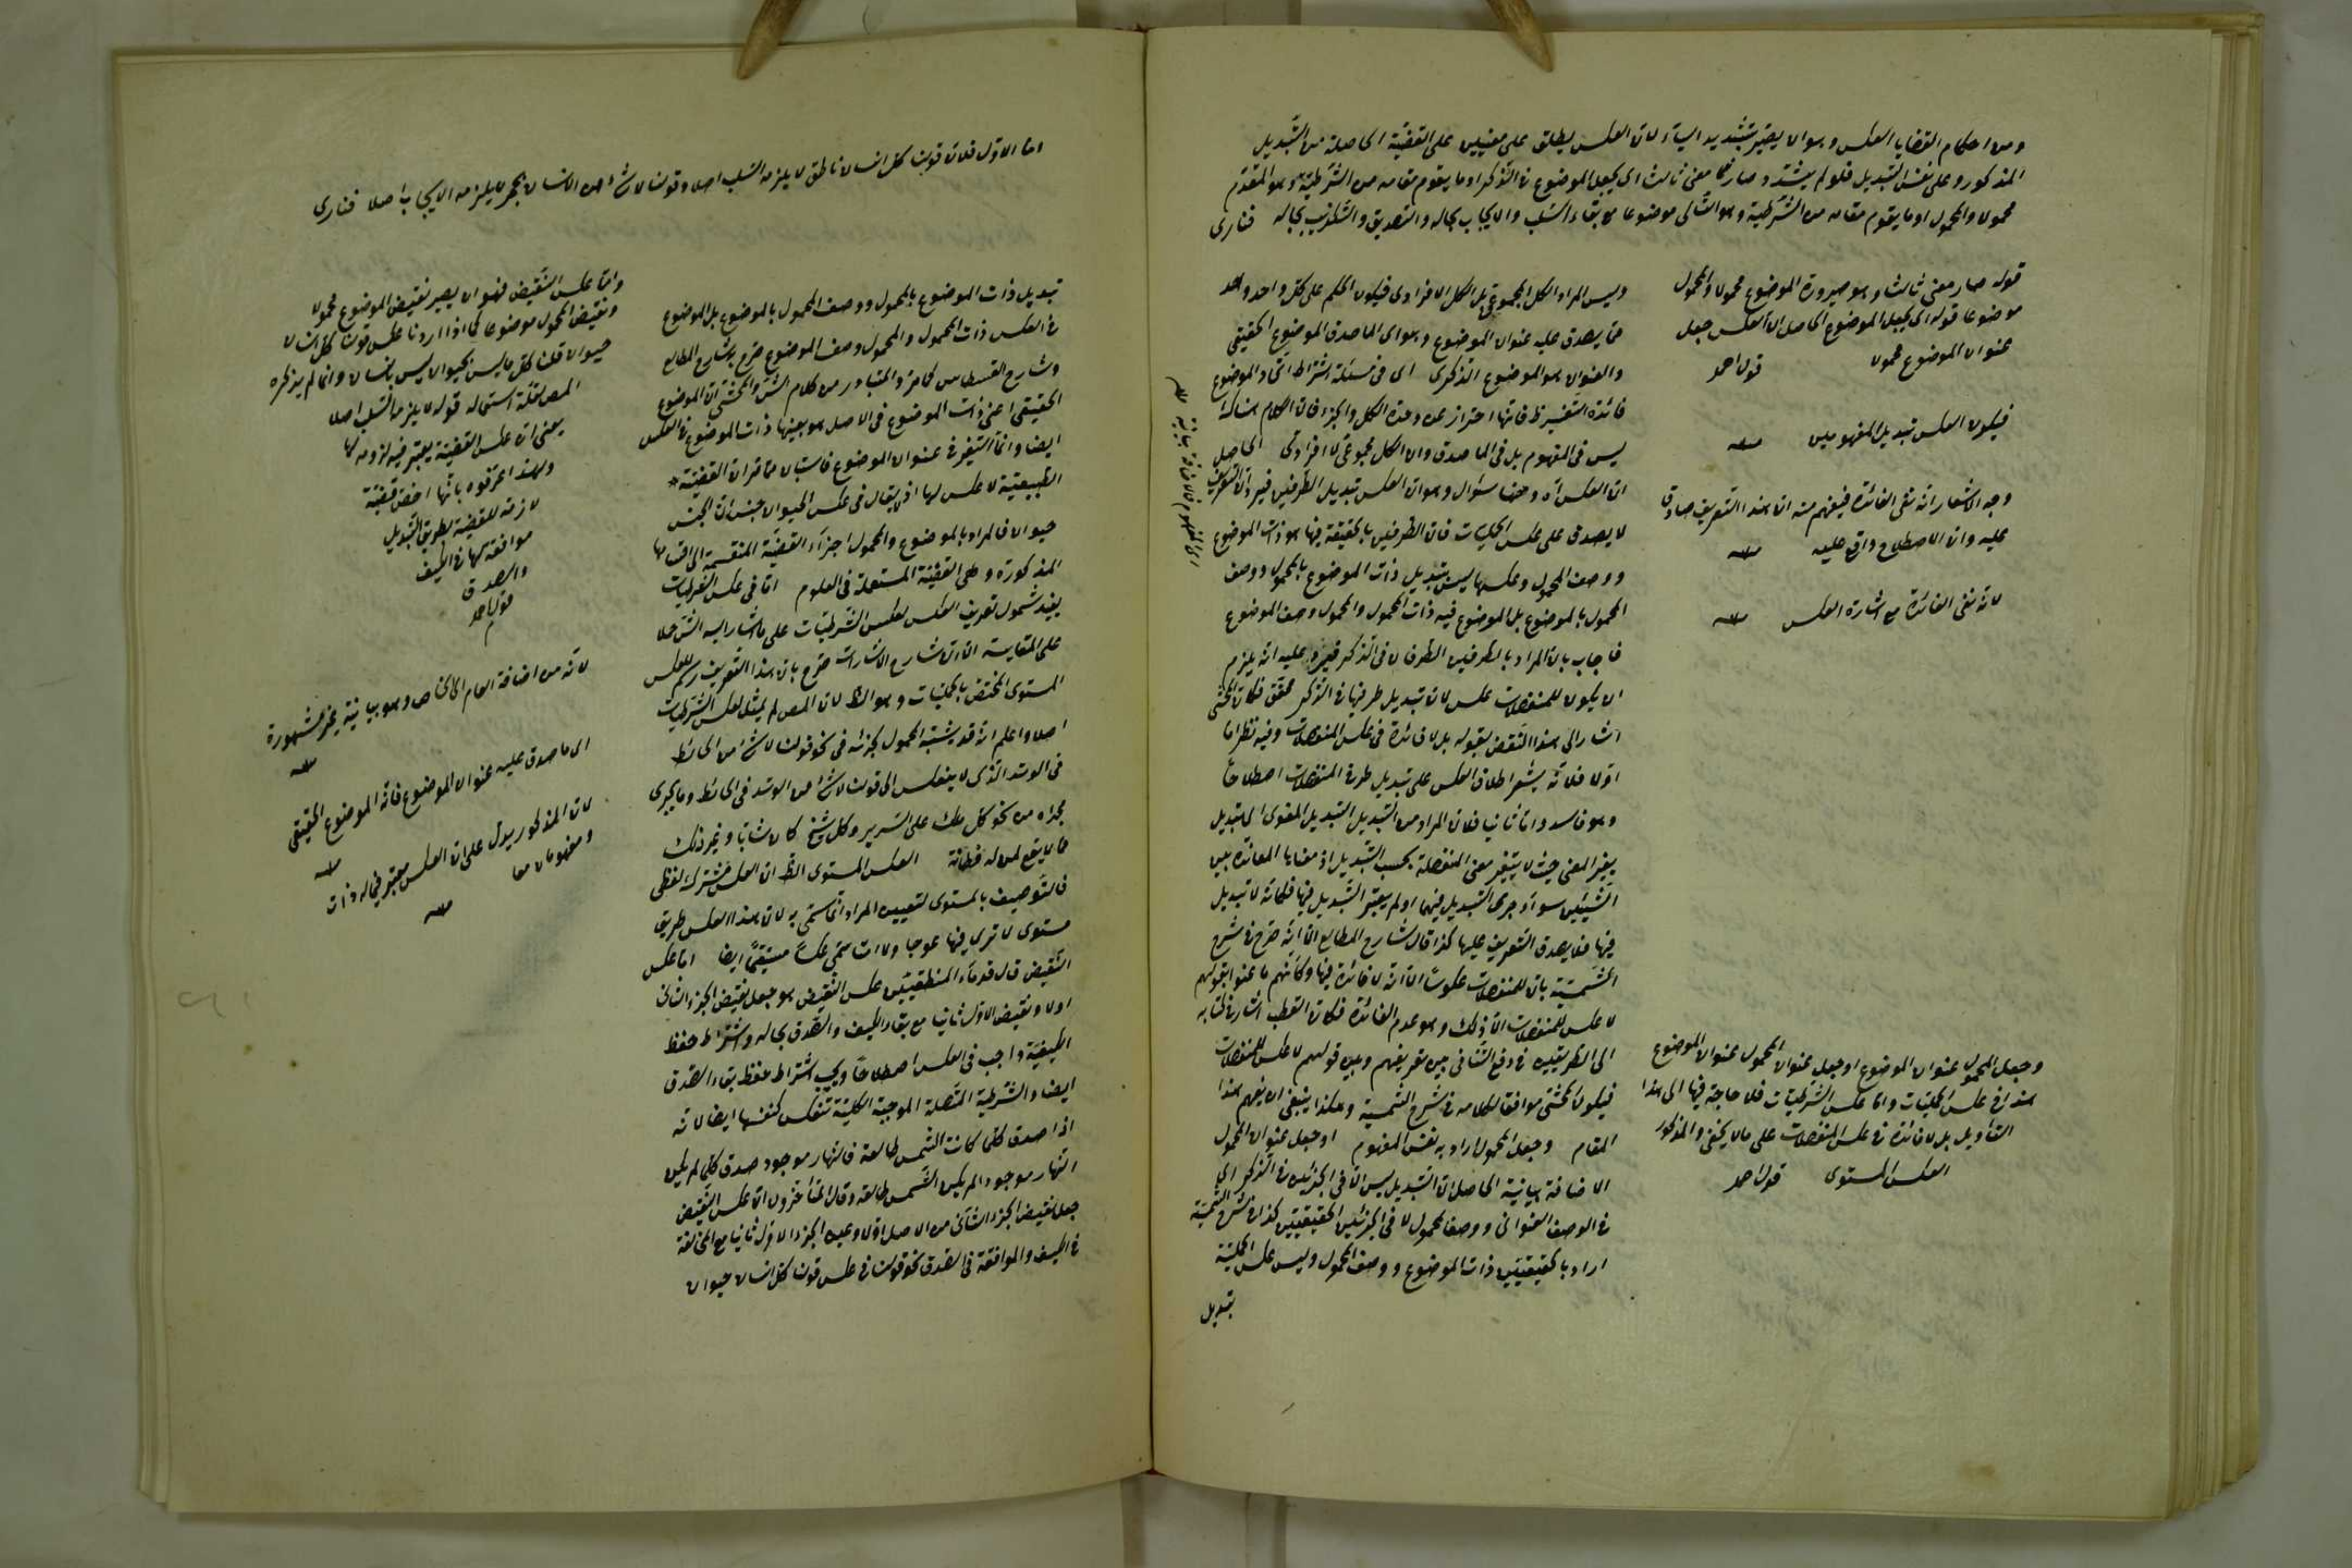 ومن احكام القضايا العكس وهو ان يصير بتشديد الياء لان العكس يطلق على معنيين على القضية الحاصلة من التبديل
المذكور وعلى نفس التبديل فلو لم يشدد وصار معنى ثالث اى يجعل الموضوع فى الذكر او ما يقوم مقامه من الشرطية وهو المقدم
محمولا والمحمول او ما يقوم مقامه من الشرطية وهو التالى موضوعا مع بقاء السلب والايجاب بحاله والتصديق والتكذيب بحاله فنارى
قوله صار معنى ثالث وهو صيرورة الموضوع محمولا والمحمول
موضوعا قوله اى يجعل الموضوع الحاصل ان العكس جعل
عنوان الموضوع محمولا قول احمد
فيكون العكس تبديل المفهومين منه
وجه الاشعار انه نفى الفائدة فيفهم منه ان هذا التعريف صادق
عليه وان الاصطلاح واقع عليه منه
لانه نفى الفائدة مع اشارة العكس منه
وجعل المحمول عنوان الموضوع او جعل عنوان المحمول عنوان الموضوع
هذا فى عكس الحمليات واما عكس الشرطيات فلا حاجة فيها الى هذا
التأويل بل لا فائدة فى عكس المنفصلات على ما لا يخفى والمذكور
العكس المستوى قول احمد
وليس المراد الكل المجموعى بل الكل الافرادى فيكون الحكم على كل واحد واحد
مما يصدق عليه عنوان الموضوع وهو اى الماصدق الموضوع الحقيقى
والعنوان هو الموضوع الذكرى اى فى مسئلة اشتراط اتحاد الموضوع
فائدة التفسير ظ فانها احتراز عن وحدة الكل والجزء فان الكلام هناك
ليس فى المفهوم بل فى الماصدق وان الكل مجموعى لا افرادى الحاصل
ان العكس آه وههنا سؤال وهو ان العكس تبديل الطرفين فيرد ان التعريف
لا يصدق على عكس الحمليات فان الطرفين بالحقيقة فيها هو ذات الموضوع
ووصف المحمول وعكسها ليس بتبديل ذات الموضوع بالمحمول ووصف
المحمول بالموضوع بل الموضوع فيه ذات المحمول والمحمول وصف الموضوع
فاجاب بان المراد بالطرفين الطرفان فى الذكر فيرد عليه انه يلزم
ان يكون للمنفصلات عكس لان تبديل طرفيها فى الذكر محقق فكان المحشى
اشار الى هذا النقض بقوله بل لا فائدة فى عكس المنفصلات وفيه نظر اما
اولا فلانه يشعر اطلاق العكس على تبديل طرفى المنفصلات اصطلاحا
وهو فاسد واما ثانيا فلان المراد من التبديل التبديل المعنوى اى تبديل
يغير المعنى حيث لا يتغير معنى المنفصلة بحسب التبديل اذ معناها المعاندة بين
الشيئين سواء جرى التبديل فيهما او لم يعتبر التبديل فيها فكانه لا تبديل
فيها فلا يصدق التعريف عليها كذا قال شارح المطالع الا انه صرح فى شرح
الشمسية بان للمنفصلات عكوسا الا انه لا فائدة فيها وكأنهم ما عنوا بقولهم
لا عكس للمنفصلات الا ذلك وهو عدم الفائدة فكان القطب اشار فى كتابه
الى الطريقين فى دفع التنافى بين تعريفهم وبين قولهم لا عكس للمنفصلات
فيكون المحشى موافقا لكلامه فى شرح الشمسية وهكذا ينبغى ان يفهم هذا
المقام وجعل المحمول اراد به نفس المفهوم او جعل عنوان المحمول
الاضافة بيانية الحاصل ان التبديل ليس الا فى الجزئين فى الذكر اى
فى الوصف العنوانى ووصف المحمول لا فى الجزئين الحقيقيين كذا فى شرح الشمسية
اراد بالحقيقيين ذات الموضوع ووصف المحمول وليس عكس الحملية
تبديل
اما الاول فلان قولنا كل انسان ناطق لا يلزمه السلب اصلا وقولنا لا شئ من الانسان بحجر لا يلزمه الايجاب اصلا فنارى
تبديل ذات الموضوع بالمحمول ووصف المحمول بالموضوع بل الموضوع
فى العكس ذات المحمول والمحمول وصف الموضوع صرح به شارح المطالع
وشارح القسطاس كما مر والمتبادر من كلام الش والمحشى ان الموضوع
الحقيقى اعنى ذات الموضوع فى الاصل هو بعينها ذات الموضوع فى العكس
ايضا وانما التغير فى عنوان الموضوع فاستبان مما قر ان القضية
الطبيعية لا عكس لها اذ لا يقال فى عكس الحيوان جنس ان الجنس
حيوان فالمراد بالموضوع والمحمول اجزاء القضية المنقسمة الى اقسامها
المذكورة وهى القضية المستعملة فى العلوم اما فى عكس الشرطيات
يفيد شمول تعريف العكس لعكس الشرطيات على ما اشار اليه الش حملا
على المقايسة الا ان شارح الاشارات صرح بان هذا التعريف رسم للعكس
المستوى المختص بالحمليات وهو الظ لان المص لم يمثل لعكس الشرطيات
اصلا واعلم انه قد يشتبه المحمول بجزئه فى نحو قولنا لا شئ من الحائط
فى الوتد الذى لا ينعكس الى قولنا لا شئ من الوتد فى الحائط وما يجرى
مجراه من نحو كل ملك على السرير وكل شيخ كان شابا وغير ذلك
مما لا يقع لمن له فطانة العكس المستوى الظ ان العكس مشترك لفظى
فالتوصيف بالمستوى لتعيين المراد انما سمى به لان هذا العكس طريق
مستوى لا ترى فيها عوجا ولا امتا سمى عكسا مستقيما ايضا اما عكس
النقيض قال قدماء المنطقيين عكس النقيض هو جعل نقيض الجزء الثانى
اولا ونقيض الاول ثانيا مع بقاء الكيف والصدق بحاله واشتراط حفظ
الكيفية واجب فى العكس اصطلاحا ويجب اشتراط حفظ بقاء الصدق
ايضا والشرطية المتصلة الموجبة الكلية تنعكس كنفسها ايضا لانه
اذا صدق كلما كانت الشمس طالعة فالنهار موجود صدق كلما لم يكن
النهار موجودا لم يكن الشمس طالعة وقال المتأخرون ان عكس النقيض
جعل نقيض الجزء الثانى من الاصل اولا وعين الجزء الاول ثانيا مع المخالفة
فى الكيف والموافقة فى الصدق نحو قولنا فى عكس قولنا كل انسان حيوان
واما عكس النقيض فهو ان يصير نقيض الموضوع محمولا
ونقيض المحمول موضوعا كما اذا اردنا عكس قولنا كل انسان
حيوان قلنا كل ما ليس بحيوان ليس بانسان وانما لم يذكره
المص لقلة استعماله قوله لا يلزمه السلب اصلا
يعنى ان عكس القضية يعتبر فيه لزومه لها
ولهذا عرفوه بانها اخص قضية
لازمة للقضية بطريق التبديل
موافقة لها فى الكيف
والصدق
قول احمد
لانه من اضافة العام الى الخاص وهو بيانية غير مشهورة
منه
اى ما صدق عليه عنوان الموضوع فانه الموضوع الحقيقى
منه
لان المذكور يدل على ان العكس معتبر فيما له ذات
ومفهومان معا
منه